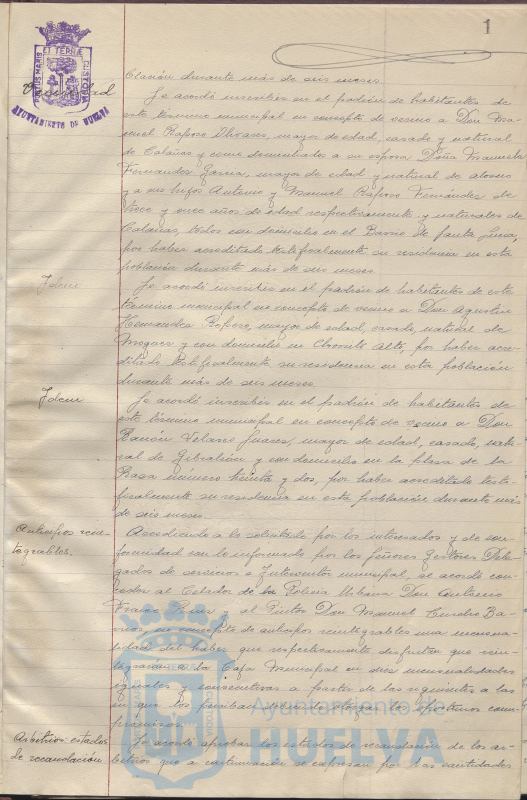 1
PORTUS MARIS ET TERRAE CUSTODIA
AYUNTAMIENTO DE HUELVA
Vecindad
blación durante más de seis meses.
Se acordó inscribir en el padrón de habitantes de
este término municipal en concepto de vecino a Don Ma-
nuel Raposo Olivares, mayor de edad, casado y natural
de Calañas y como domiciliados a su esposa Doña Manuela
Fernández García, mayor de edad y natural de Alosno
y a sus hijos Antonio y Manuel Raposo Fernández de
trece y once años de edad respectivamente y naturales de
Calañas, todos con domicilio en el Barrio de Santa Lucía,
por haber acreditado testificalmente su residencia en esta
población durante más de seis meses.
Idem
Se acordó inscribir en el padrón de habitantes de este
término municipal en concepto de vecino a Don Agustín
Hernández Raposo, mayor de edad, casado, natural de
Moguer y con domicilio en Chorrito Alto, por haber acre-
ditado testificalmente su residencia en esta población
durante más de seis meses.
Idem
Se acordó inscribir en el padrón de habitantes de
este término municipal en concepto de vecino a Don
Ramón Velasco Juárez, mayor de edad, casado, natu-
ral de Gibraleón y con domicilio en la plaza de la
Rasa número treinta y dos, por haber acreditado testi-
ficalmente su residencia en esta población durante más
de seis meses.
Anticipos rein-
tegrables.
Accediendo a lo solicitado por los interesados y de con-
formidad con lo informado por los Señores Gestores Dele-
gados de servicios e Interventor municipal, se acordó con-
ceder al Celador de la Policía Urbana Don Antonio
Franco y al Pintor Don Manuel Ba-
rrios en concepto de anticipos reintegrables una mensua-
lidad del haber que respectivamente disfrutan que rein-
tegrarán a la Caja Municipal en diez mensualidades
iguales y consecutivas a partir de las siguientes a las
en que los perciban debiendo otorgar el oportuno com-
promiso.
Arbitrios: estados
de recaudación
Se acordó aprobar los estados de recaudación de los ar-
bitrios que a continuación se expresan por las cantidades
Ayuntamiento de
HUELVA